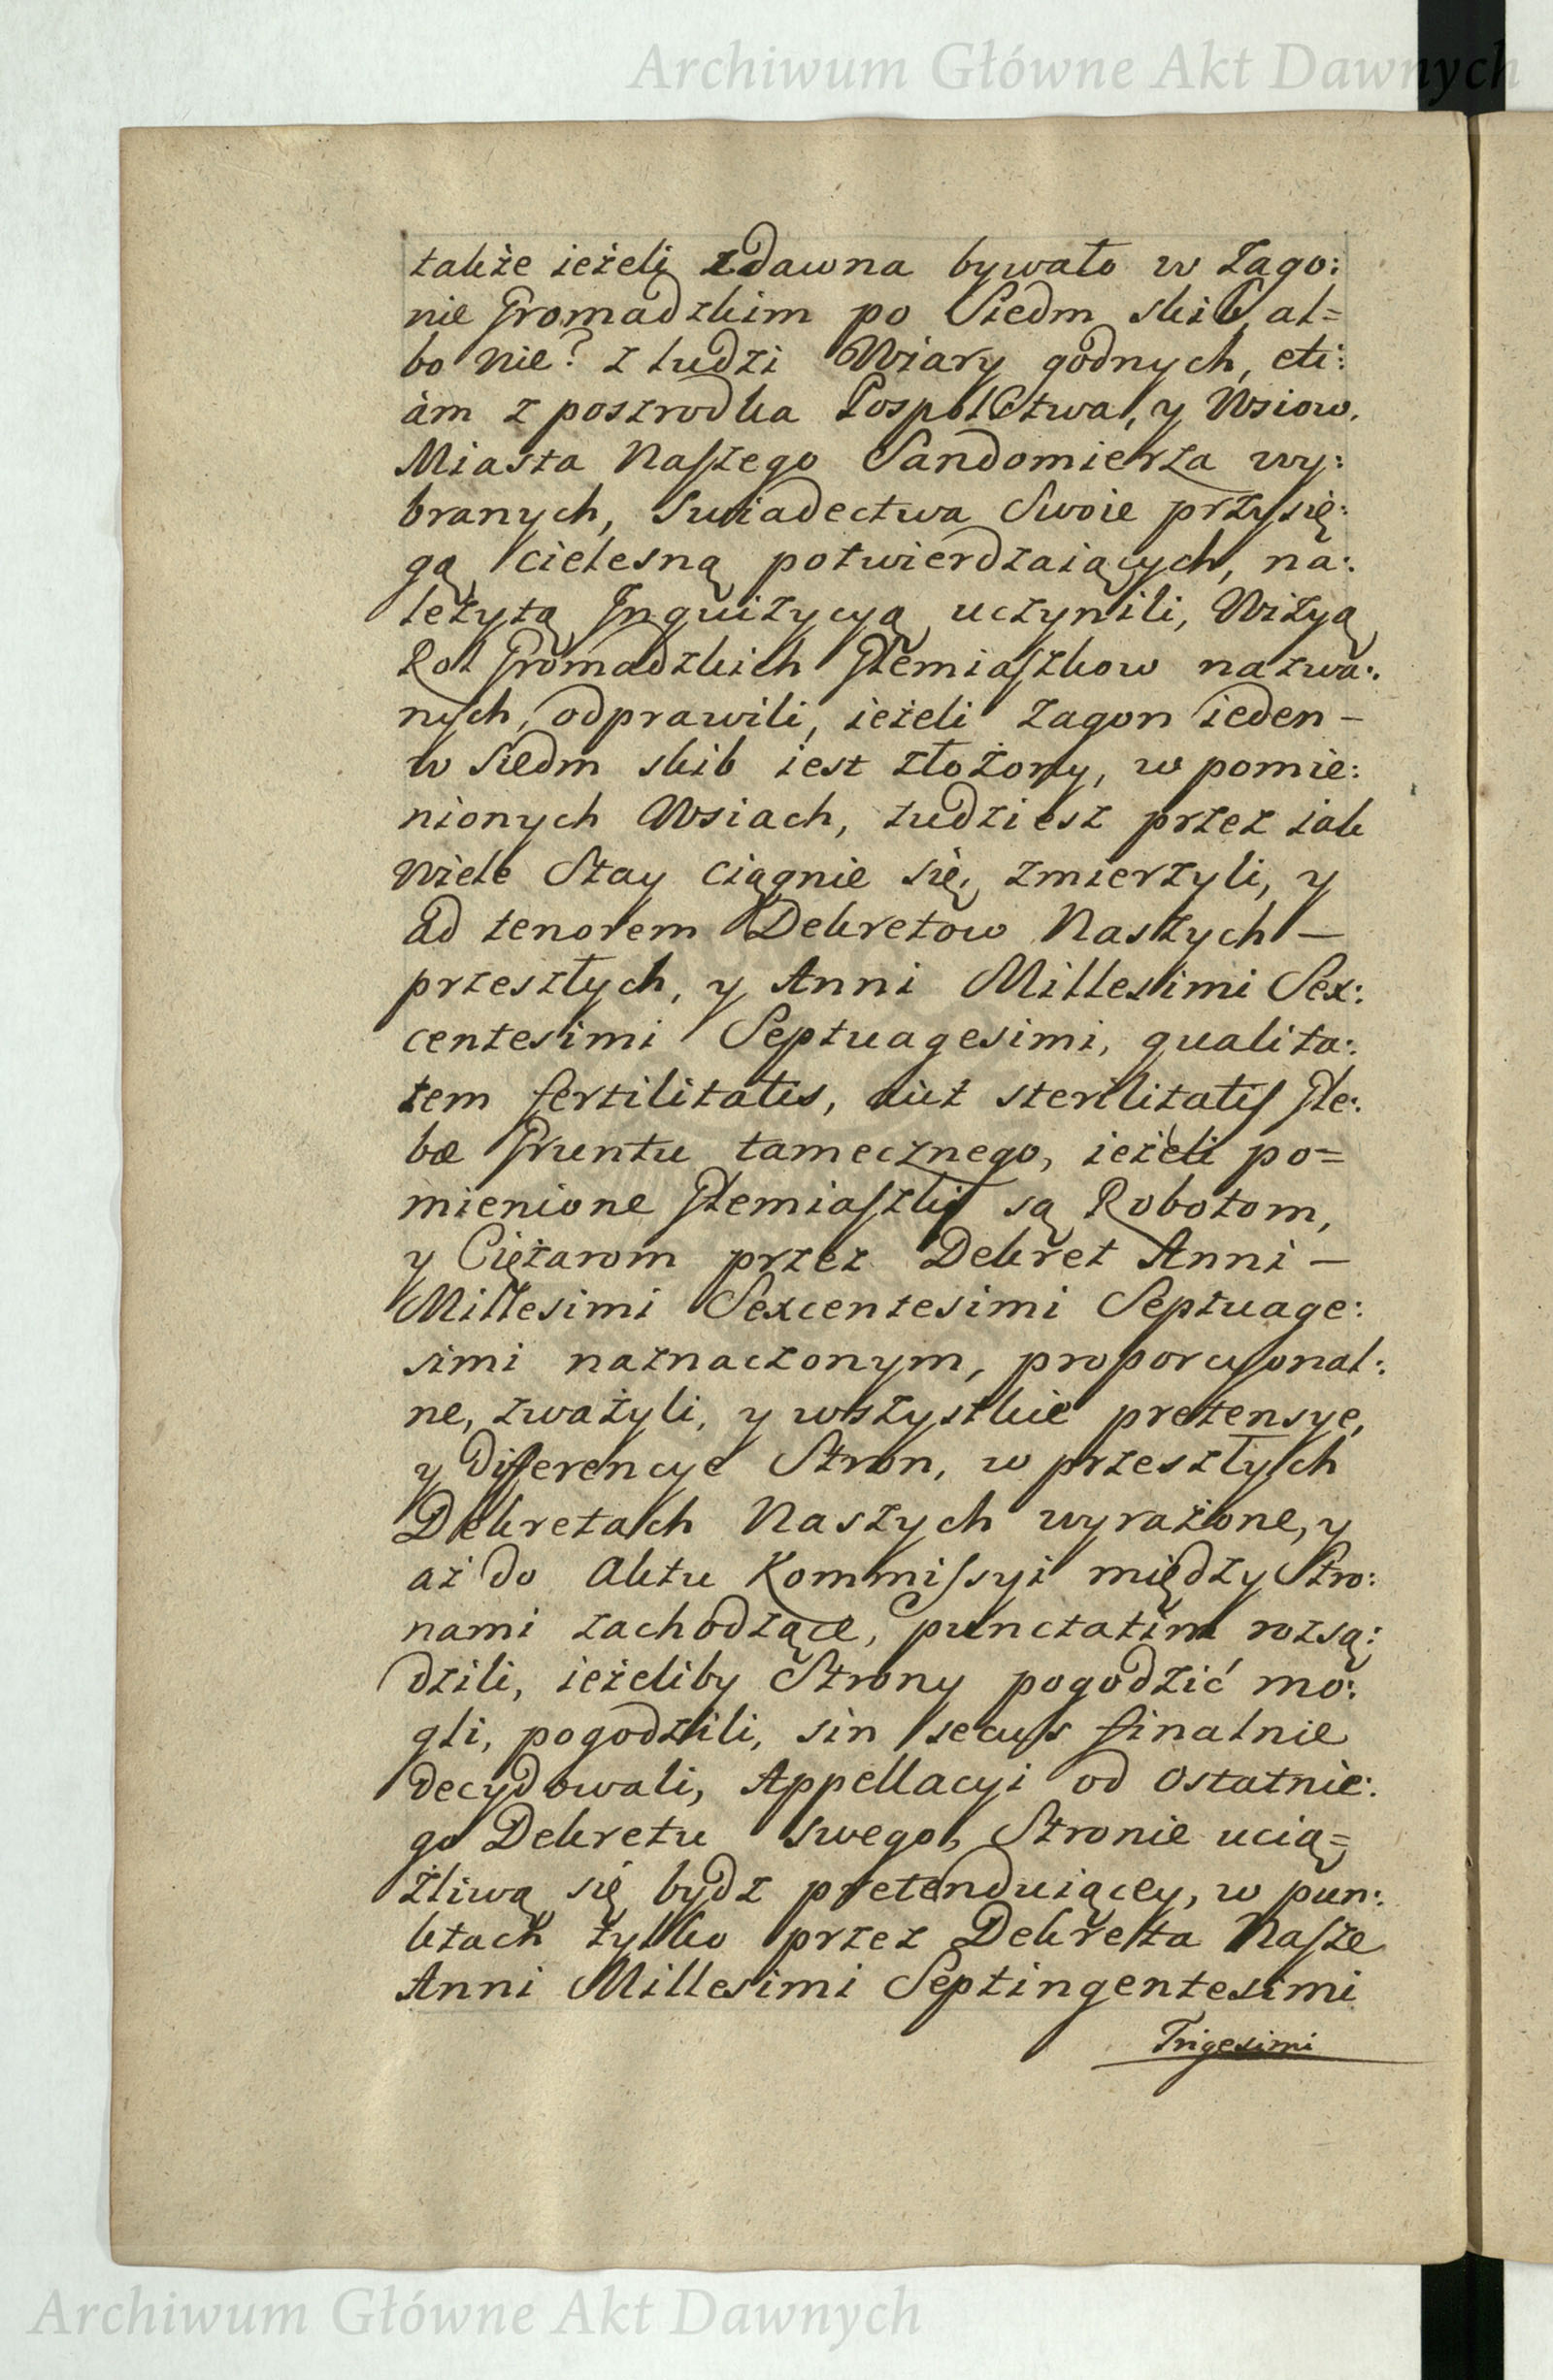 Archiwum Główne Akt Dawnych
także ieżeli zdawna bywało w Zago:
nie Gromadzkim po Siedm skib al=
bo nie? z ludzi Wiary godnych, eti:
am z poszrodka Pospolstwa, y Wsiow,
Miasta Naszego Sandomierza wy:
branych, Swiadectwa Swoie przysię:
gą cielesną potwierdzaiących, na:
leżytą Inquizycyą uczynili, Wizyą
Rol Gromadzkich Płemiaszkow nazwa:
nych, odprawili, ieżeli Zagon ieden –
w Siedm skib iest złożony, w pomie:
nionych Wsiach, tudziesz przez iak
Wiele Stay Ciągnie się, zmierzyli, y
ad tenorem Dekretow Naszych –
przeszłych, y Anni Millesimi Sex:
centesimi Septuagesimi, qualita:
tem fertilitatis, aut sterilitatis Gle:
bæ Gruntu tamecznego, ieżeli po=
mienione Płemiaszki są Robotom,
y Ciężarom przez Dekret Anni –
Millesimi Sexcentesimi Septuage:
simi naznaczonym, proporcyonal:
ne, zważyli, y wszystkie pretensye,
y Differencye Stron, w przeszłych
Dekretach Naszych wyrażone, y
aż do Aktu Kommissyi między Stro:
nami zachodzące, punctatim rozsą:
dzili, ieżeliby Strony pogodzić mo:
gli, pogodzili, sin secus finalnie
decydowali, Appellacyi od Ostatnie:
go Dekretu swego, Stronie ucią=
żliwą się bydz pretenduiącey, w pun:
ktach tylko przez Dekreta Nasze
Anni Millesimi Septingentesimi
Trigesimi
Archiwum Główne Akt Dawnych